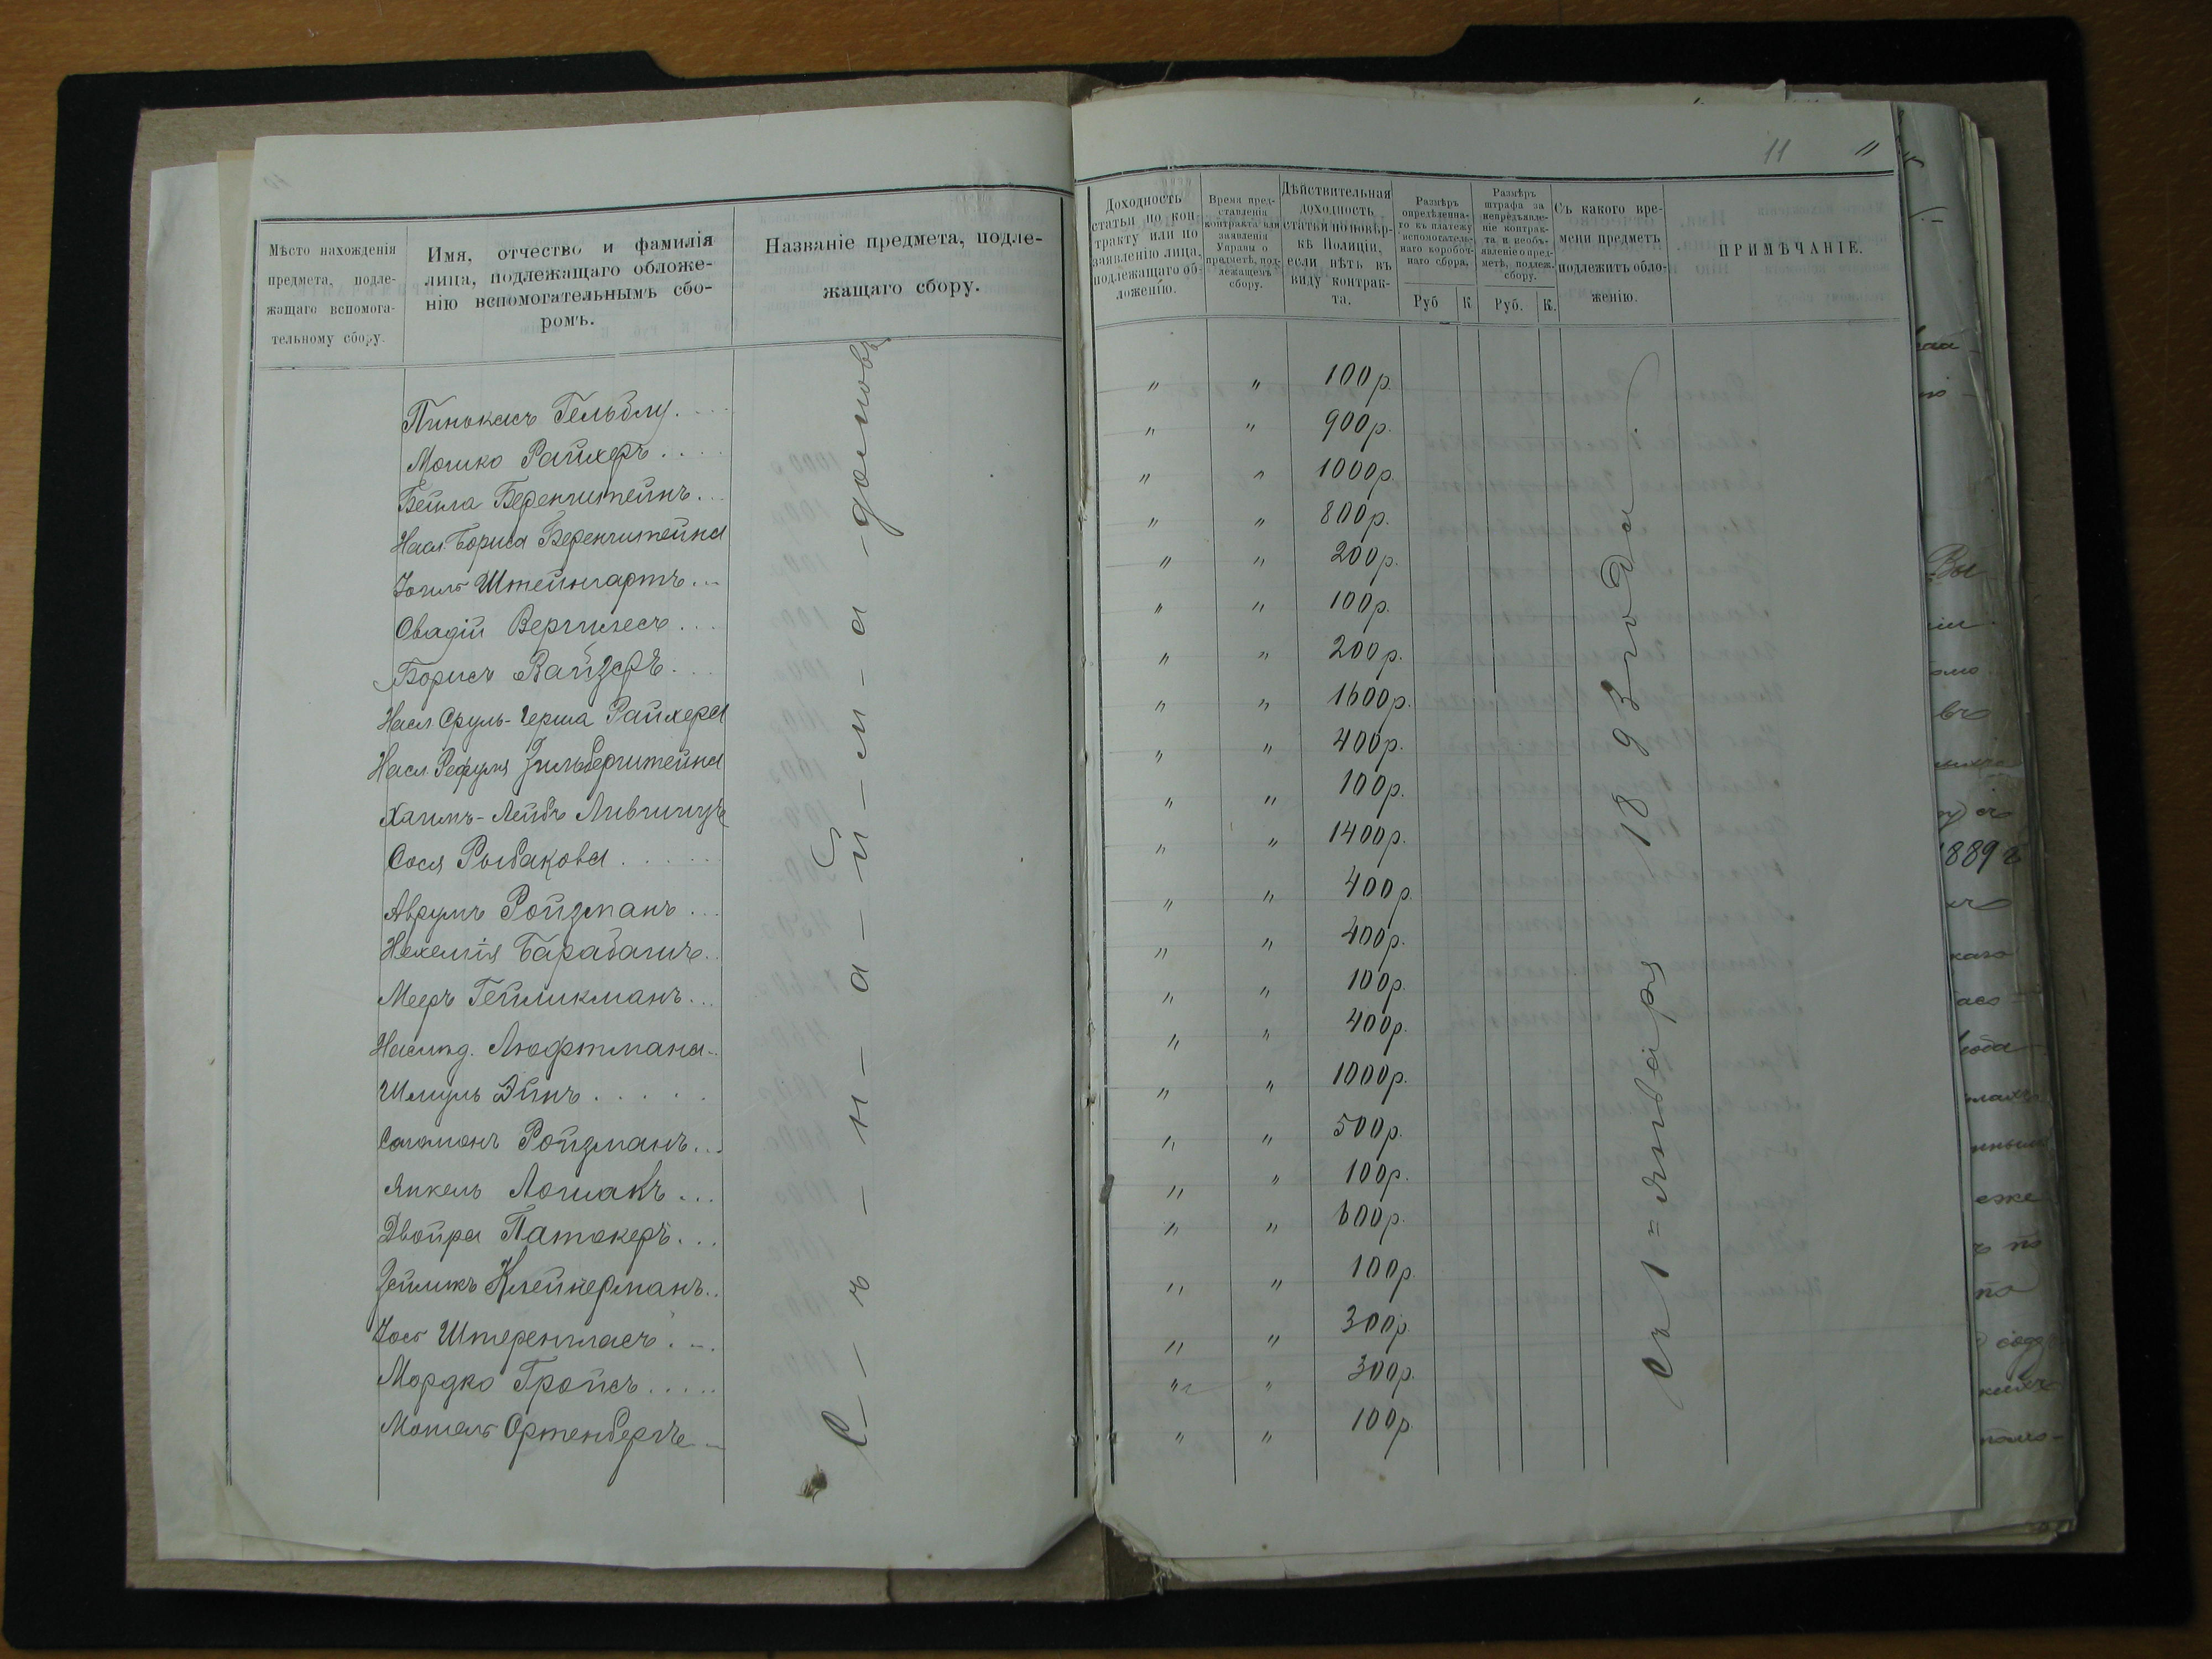 11
11
Мѣсто нахожденія
предмета, подле-
жащаго вспомога-
тельному сбору.
Имя, отчество и фамилія
лица, подлежащаго обложе-
нію вспомогательнымъ сбо-
ромъ.
Названіе предмета, подле-
жащаго сбору.
Доходность
статьи по кон-
тракту или по
заявленію лица,
подлежащаго об-
ложенію.
Время пред-
ставленія
контракта или
заявленія
Управы о
предметѣ, под-
лежащемъ
сбору.
Дѣйствительная
доходность
статьи по повѣр-
кѣ Полиціи,
если нѣтъ въ
виду контрак-
та.
Размѣръ
опредѣленна-
го къ платежу
вспомогатель-
наго коробоч-
наго сбора.
Руб К
Размѣръ
штрафа за
непредъявле-
ніе контрак-
та и необъ-
явленіе о пред-
метѣ, подлеж.
сбору.
Руб. К.
Съ какого вре-
мени предметъ
подлежитъ обло-
женію.
ПРИМѢЧАНІЕ.
Пинокасъ Гельблу. " " 100р.
Мошко Райхеръ " " 900р.
Бейла Беренштейнъ " " 1000р.
Насл. Бориса Беренштейна " " 800р.
Іосль Штейнгартъ " " 200р.
Овадій Вергилесъ " " 100р.
Борисъ Вайзеръ " " 200р.
Насл Сруль-Герша Райхера " " 1600р.
Насл. Рефуля Зильберштейна " " 400р.
Хаимъ-Лейбъ Лившицъ " " 100р.
Сося Рыбакова " " 1400р.
Аврумъ Ройзманъ " " 400р.
Нехемія Барабашъ " " 400р.
Мееръ Гейликманъ " " 100р.
Наслѣд. Люфтмана " " 400р.
Шмуль Эйнъ " " 1000р.
Соломонъ Ройзманъ " " 500р.
Янкель Лошакъ " " 100р.
Двойра Патокеръ " " 600р.
Зейликъ Клейнерманъ " " 100р
Іось Штеренгласъ " " 300р.
Мордко Гройсъ " " 300р.
Мошель Ортенбергъ " " 100р.
С-ъ-н-а-й-м-а-домовъ
Съ 1=января 1893 года.
1889 г